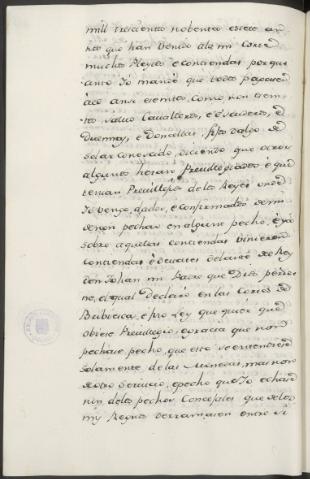 mill trescientos nobenta e siete an
tes que han Venido ante mi Corte
muchos Pleytos e Contiendas porque
como Yo mandé que todos pagasen
ansi esentos, como non esen
tos salvo Cavalleros, e Escuderos, e
Dueñas, e Doncellas fijosdalgo de
solar conocido, diciendo que
algunos heran Previlegiados e que
tenian Previllegios de los Reyes onde
Yo vengo, dados, e confirmados de mi
de non pechar en algunt pecho, e ya
sobre aquestas contiendas vinieron
contiendas e devates delante del Rey
don Johan mi Padre que Dios perdo
ne, el qual declaró en las Cortes de
Bribiesca, e fizo Ley que quier que
obiese Previlegio, o gracia que non
pechase pecho, que esto se entendiese
solamente de las Monedas, mas non
de otro Servicio, e pecho que Yo echase
nin de los pechos Concejales que de los
mis Regnos derramasen entre si